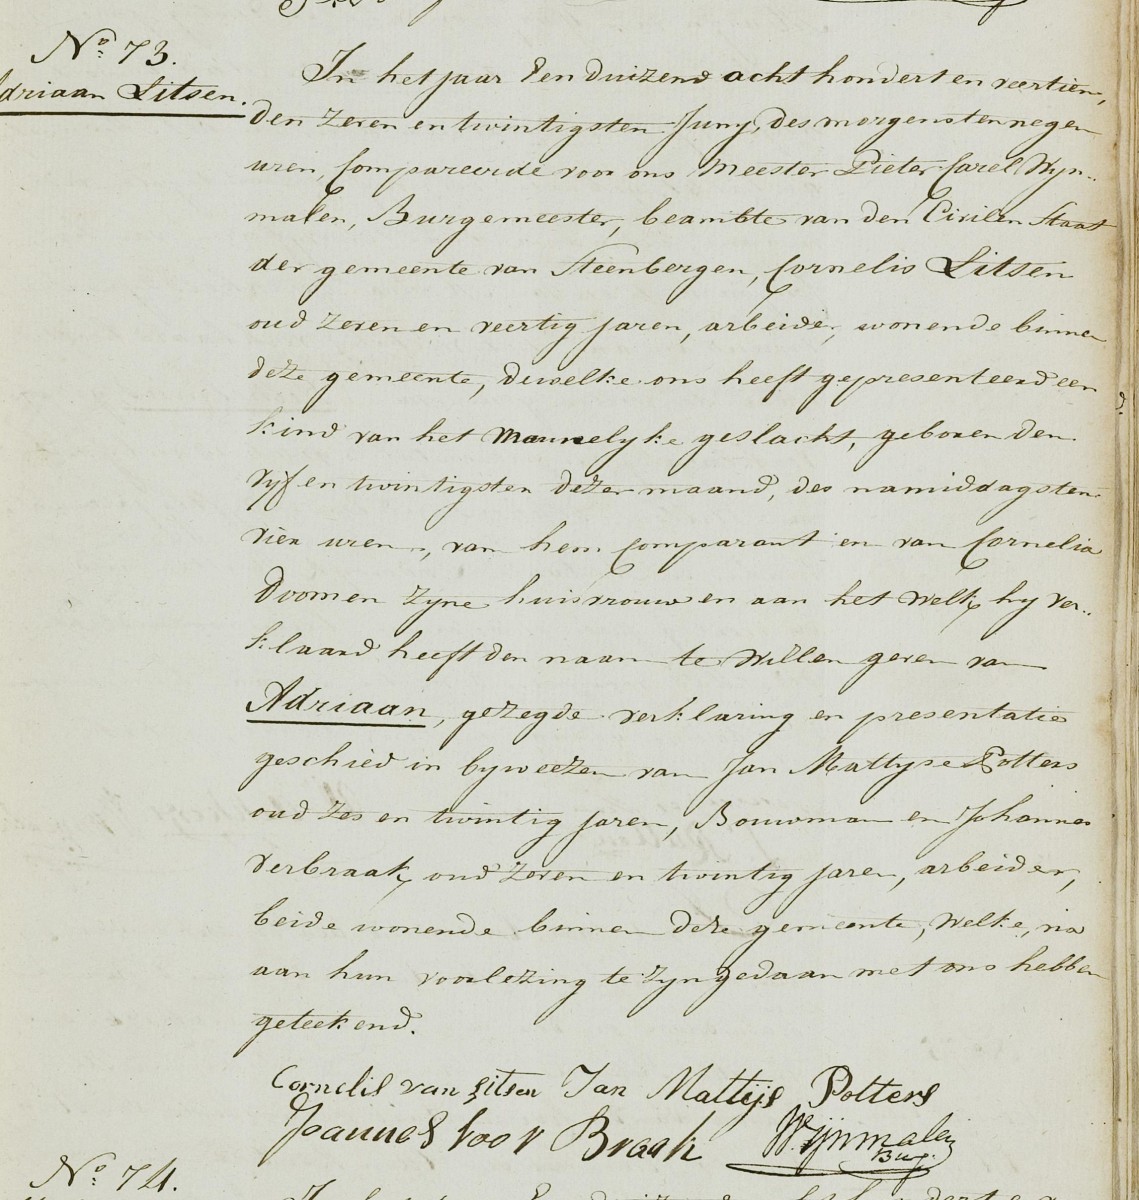 N.o 73.
driaan Litsen.
In het jaar Een duizend acht hondert en veertien,
den zeven en twintigsten Juny, des morgens ten negen
uren, Compareerde voor ons Meester Pieter Carel Wyn-
malen, Burgemeester, beambte van den Civilen Staat
der gemeente van Steenbergen, Cornelis Litsen
oud zeven en veertig jaren, arbeider, wonende binnen
deze gemeente, dewelke ons heeft gepresenteerd een
kind van het Mannelyke geslacht, geboren den
vyf en twintigsten dezer maand, des namiddags ten
vier uren, van hem Comparant en van Cornelia
Doomen zyne huisvrouw en aan het welk hy ver-
klaard heeft den naam te willen geven van
Adriaan, gezegde verklaring en presentatie
geschied in byweezen van Jan Mattyse Potters
oud zes en twintig jaren, Bouwman en Johannes
verbraak, oud zeven en twintig jaren, arbeider,
beide wonende binnen deze gemeente, Welke, na
aan hun voorlezing te zyn gedaan met ons hebben
geteekend.
Cornelis van Litsen Jan Mattijs Potters
Joannes voor Braak Wijnmalen
Burg.
N.o 74.